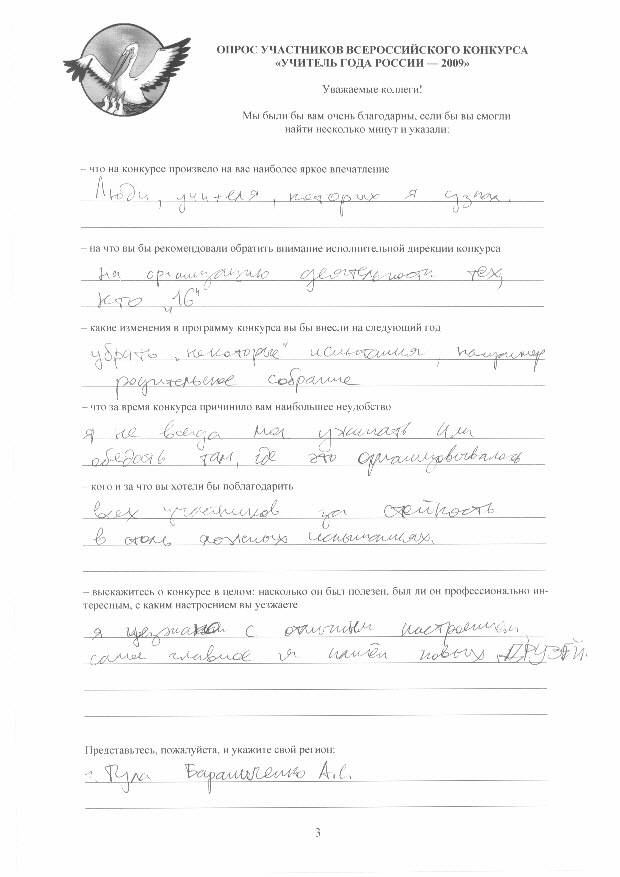 ОПРОС УЧАСТНИКОВ ВСЕРОССИЙСКОГО КОНКУРСА
«УЧИТЕЛЬ ГОДА РОССИИ — 2009»
Уважаемые коллеги!
Мы были бы вам очень благодарны, если бы вы смогли
найти несколько минут и указали:
– что на конкурсе произвело на вас наиболее яркое впечатление
Люди, учителя, которых я узнал.
– на что вы бы рекомендовали обратить внимание исполнительной дирекции конкурса
На организацию деятельности тех,
кто „16"
– какие изменения в программу конкурса вы бы внесли на следующий год
убрать „некоторые" испытания, например
родительское собрание
– что за время конкурса причинило вам наибольшее неудобство
я не всегда мог ужинать или
обедать там, где это организовывалось
– кого и за что вы хотели бы поблагодарить
всех участников за стойкость
в столь сложных испытаниях.
– выскажитесь о конкурсе в целом: насколько он был полезен, был ли он профессионально ин-
тересным, с каким настроением вы уезжаете
я уезжаю с отличным настроением,
самое главное я нашёл новых ДРУЗЕЙ.
Представьтесь, пожалуйста, и укажите свой регион:
г. Тула А.С.
3